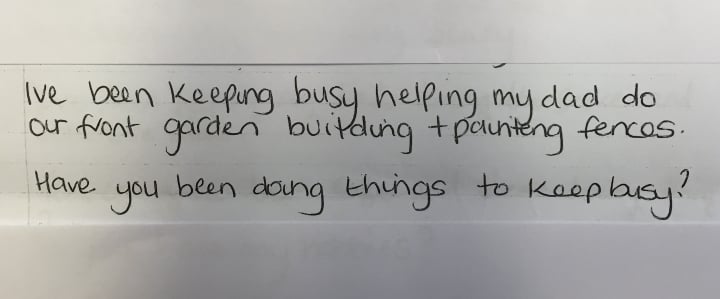 Ive been keeping busy helping my dad do
our front garden building + painting fences.
Have you been doing things to keep busy?